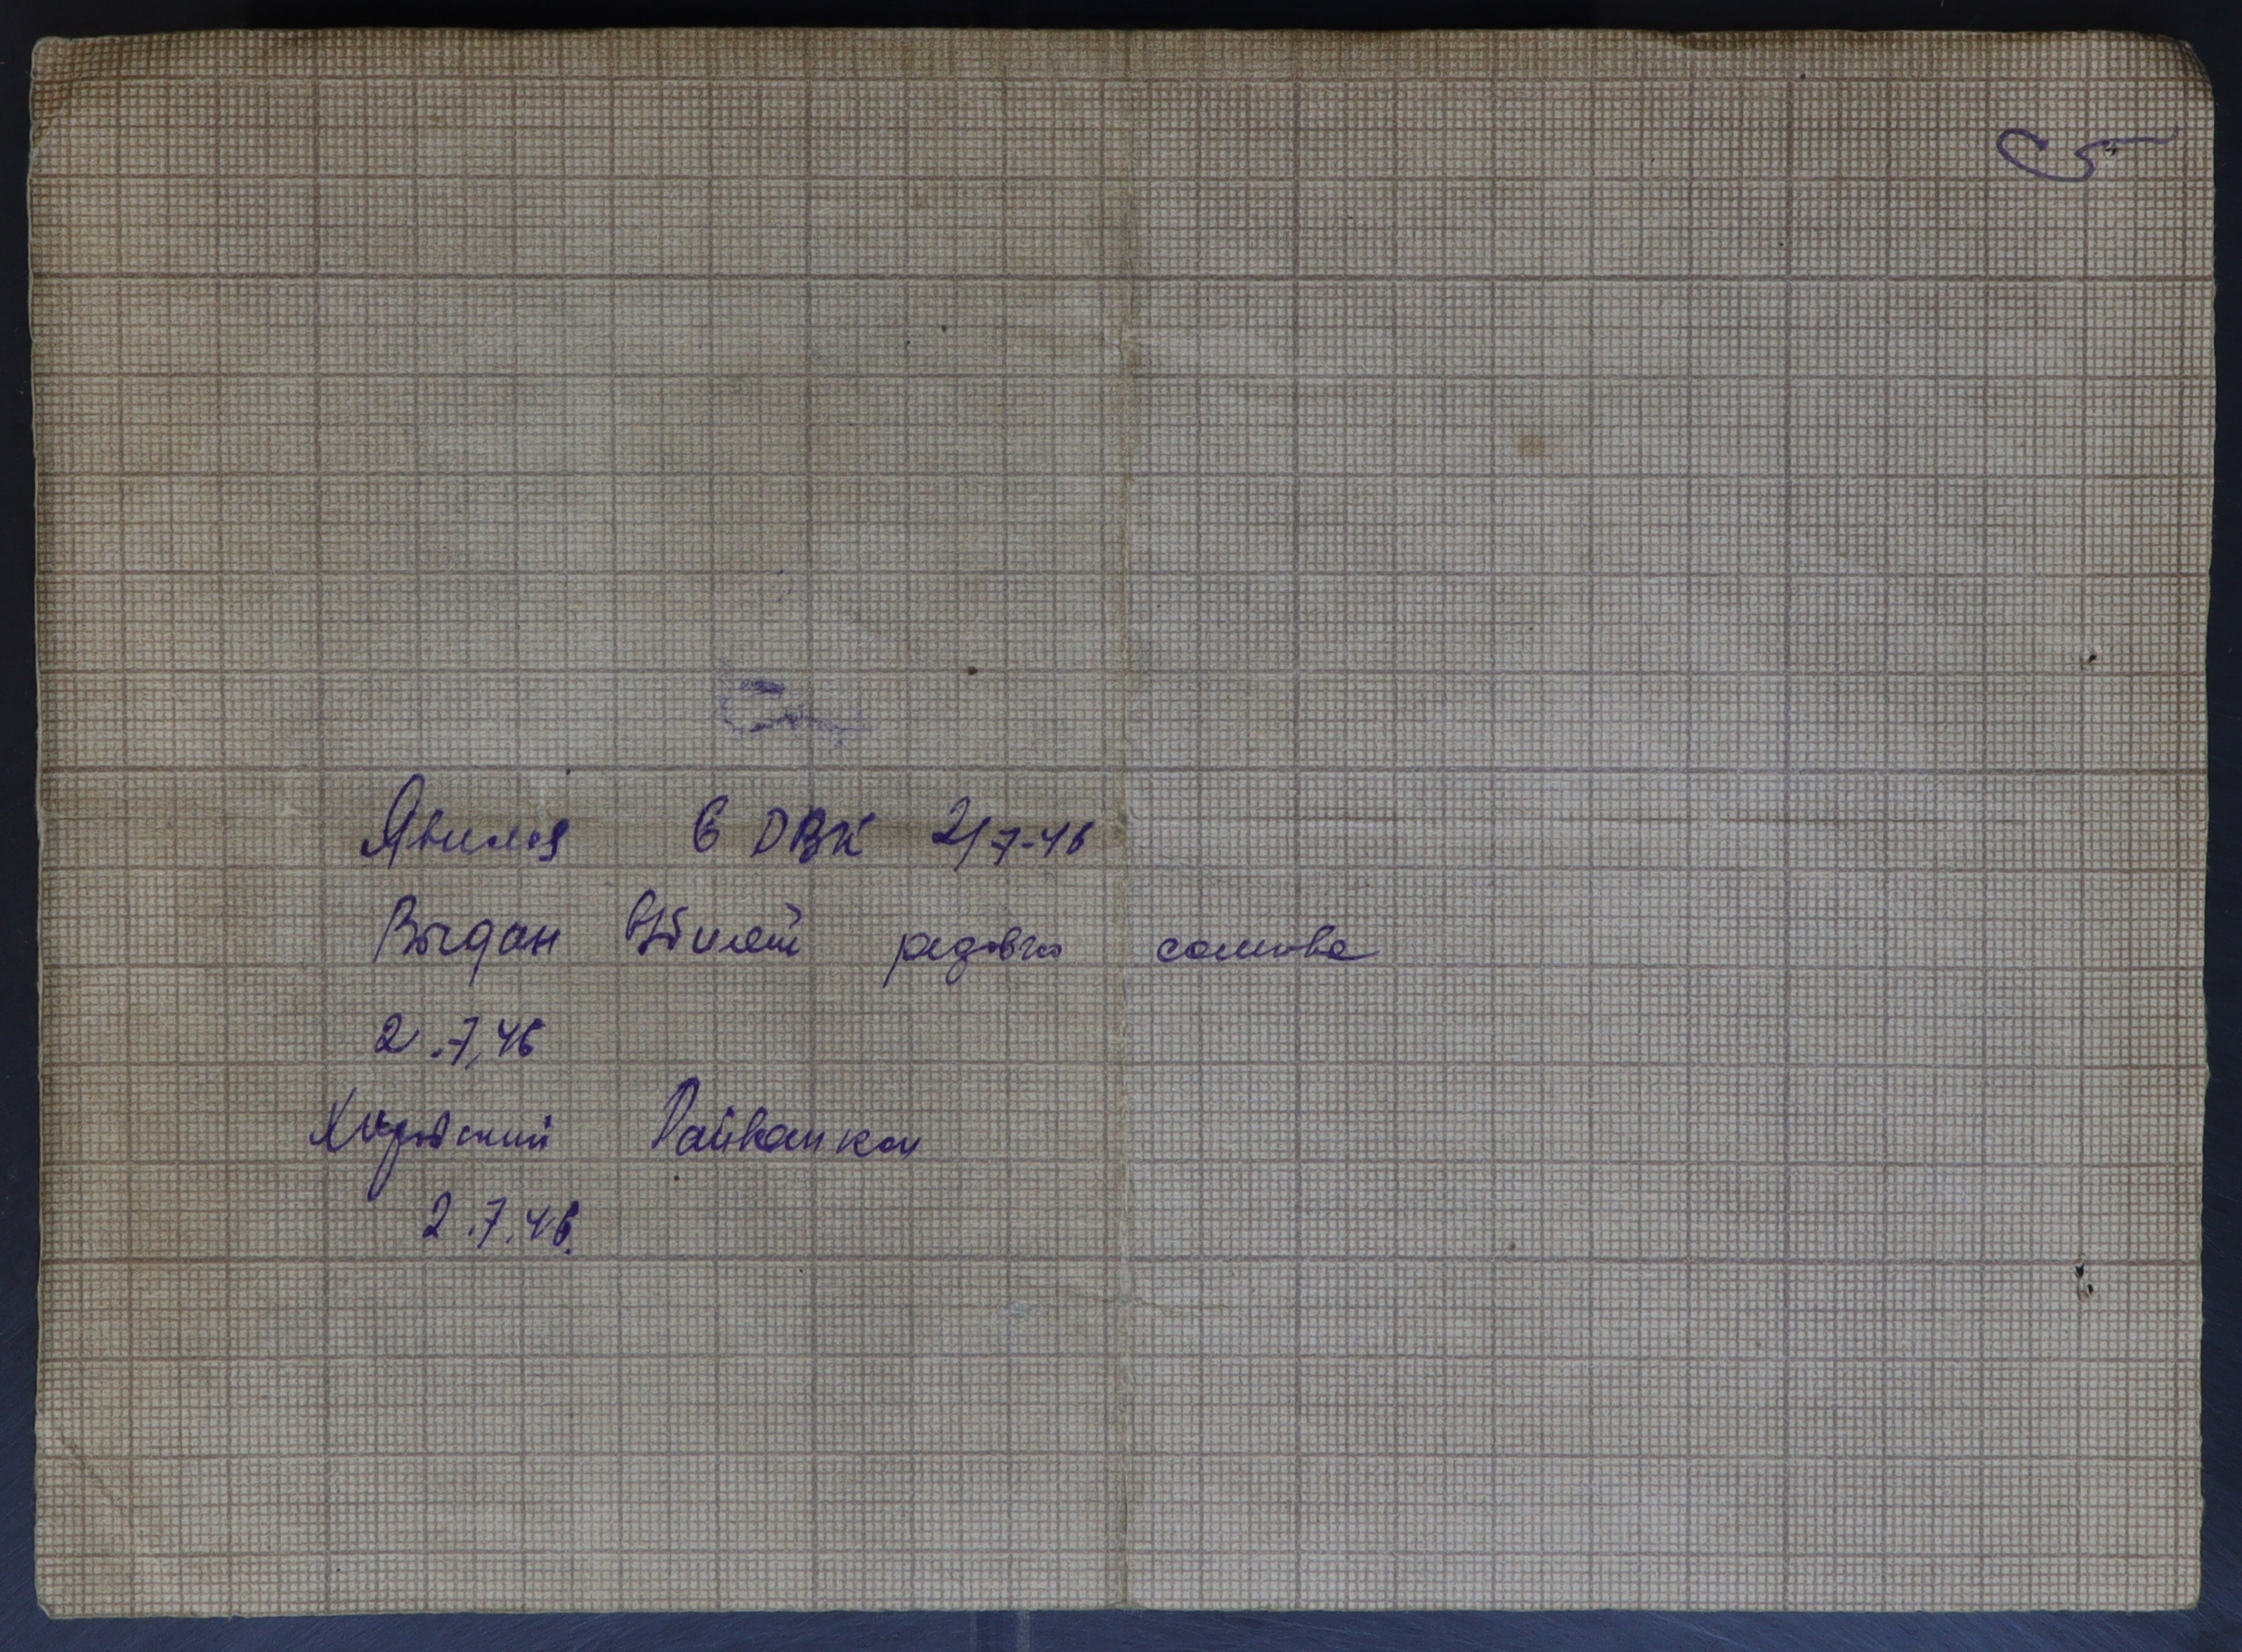 С 5
Явился в РВК 2/7-46
Выдан в/билет рядового состава
2.7.46
Хировский Райвоенком
2.7.46.